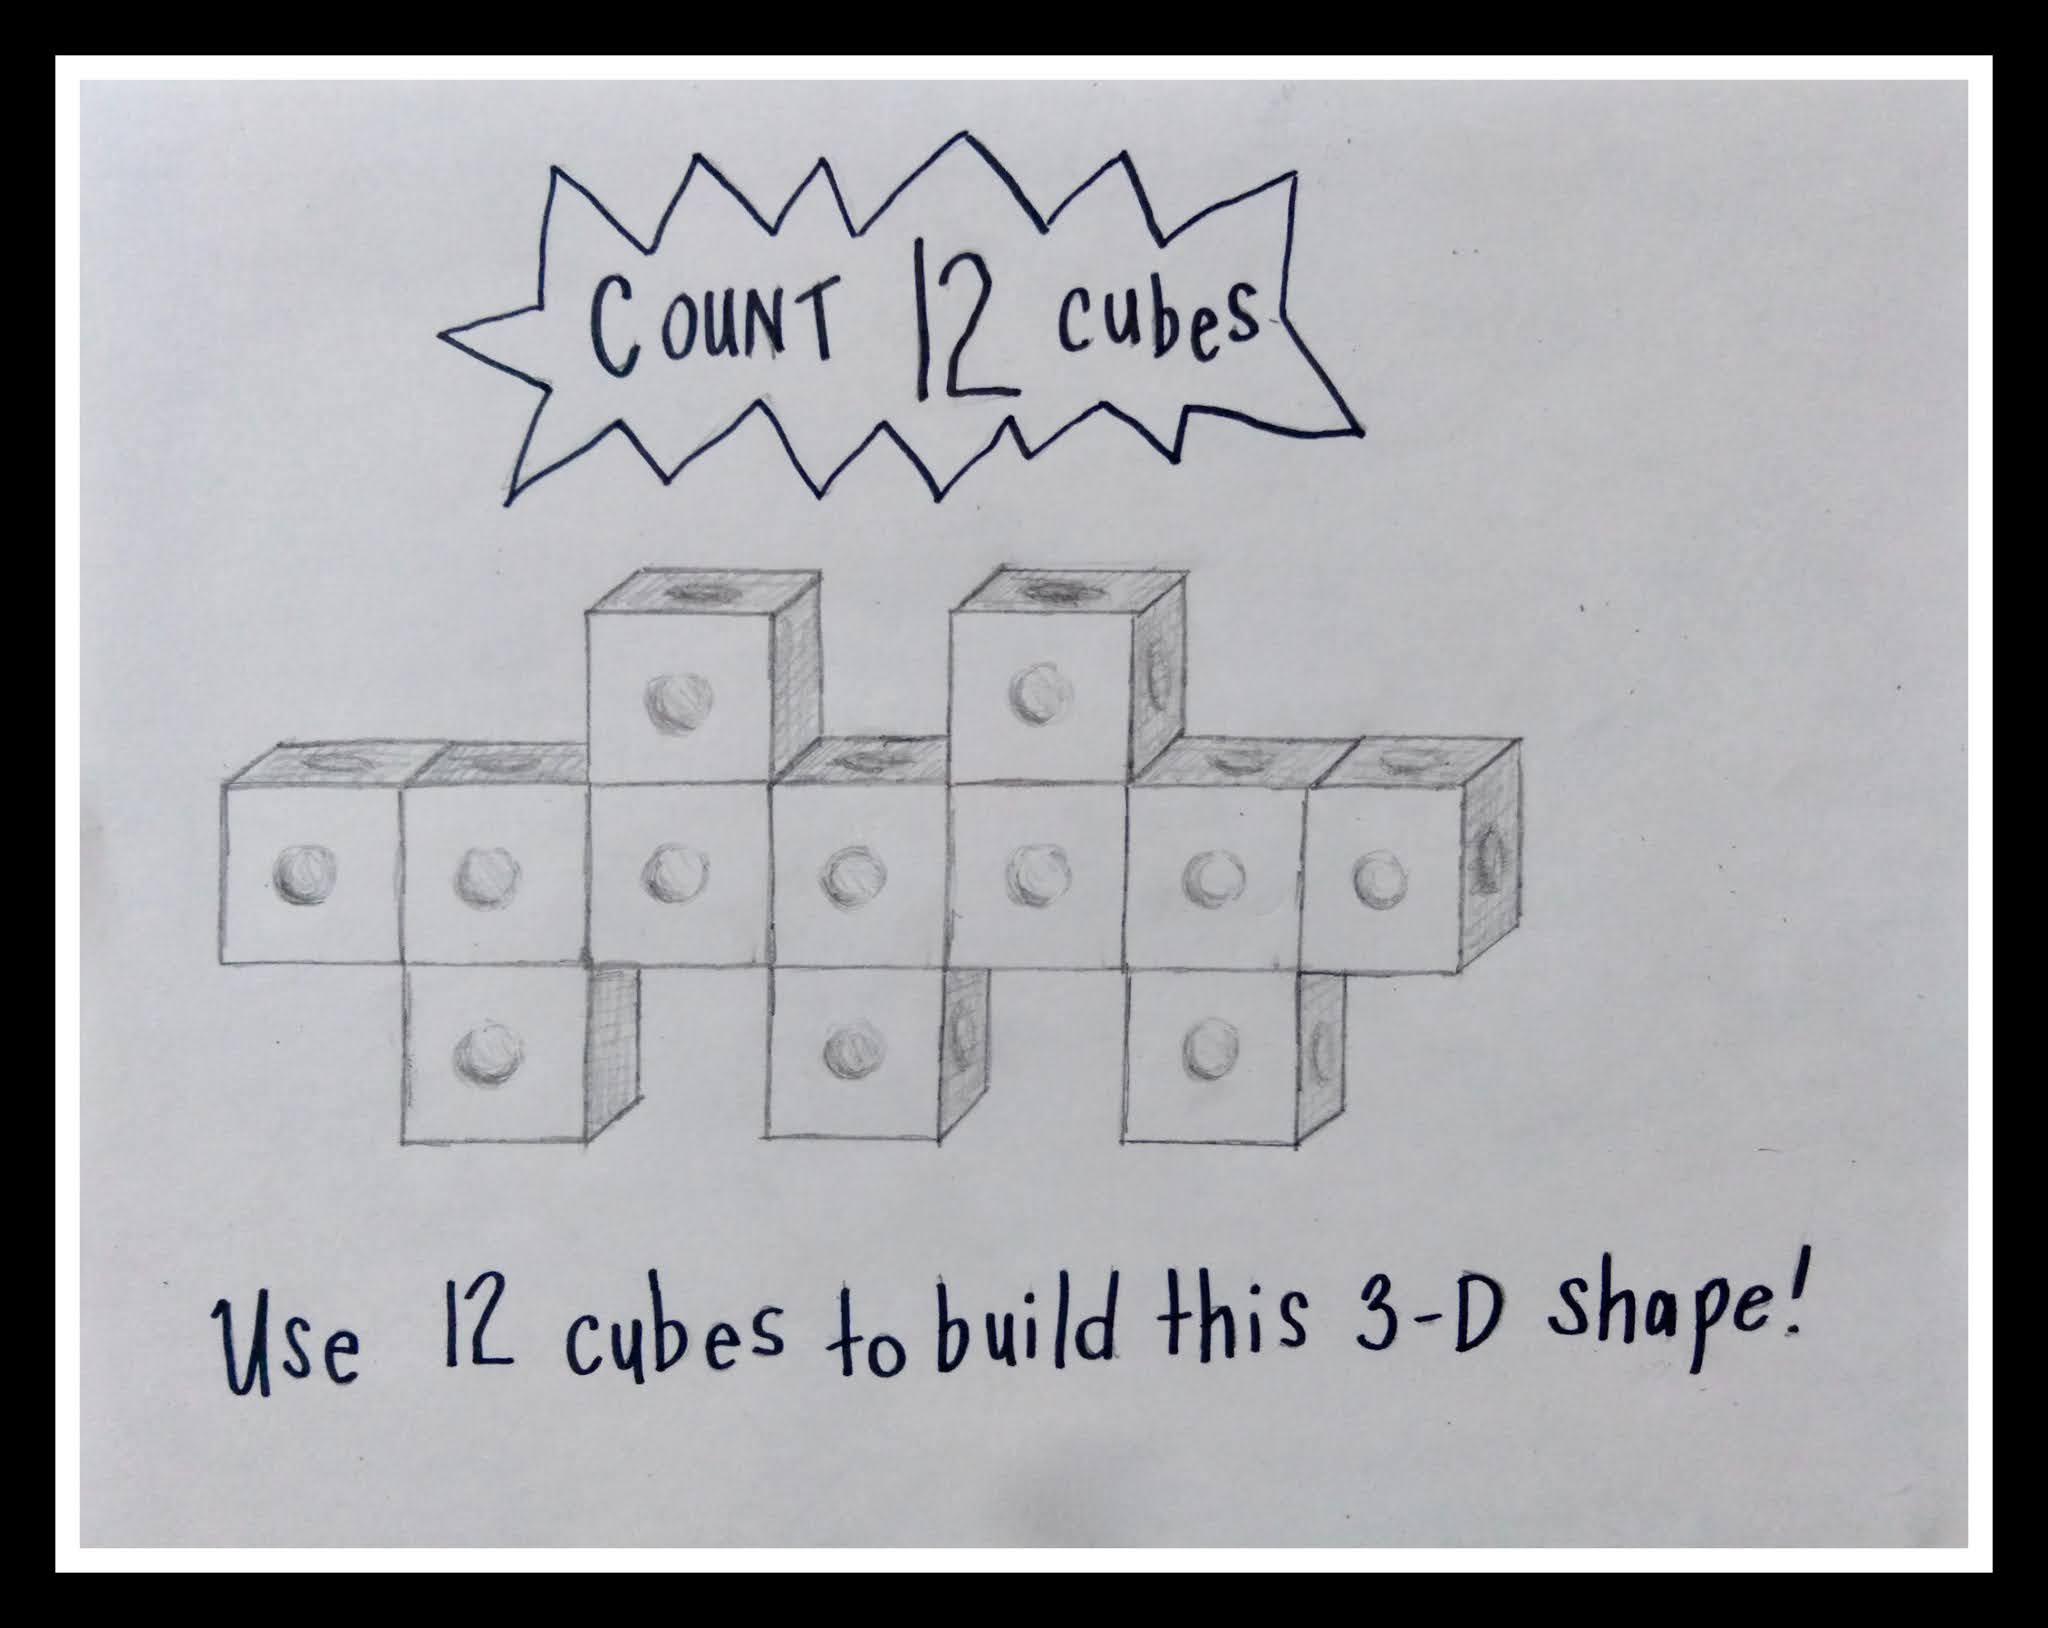 COUNT 12 cubes
Use 12 cubes to build this 3-D shape!